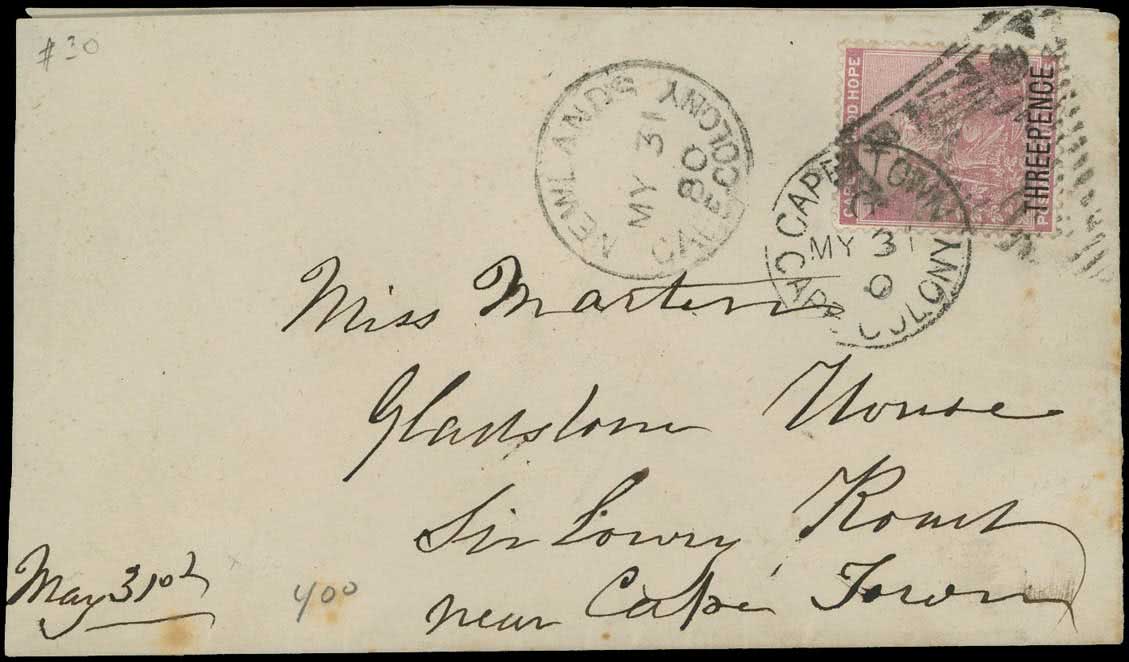 #30
NEWLANDS
MY 31
80
CAPE COLONY
CAPE TOWN
MY 31
0
CAPE COLONY
THREEPENCE
OD HOPE
Miss Martin
Gladstone House
Sir Lowry Road
near Cape Town
May 31st
400